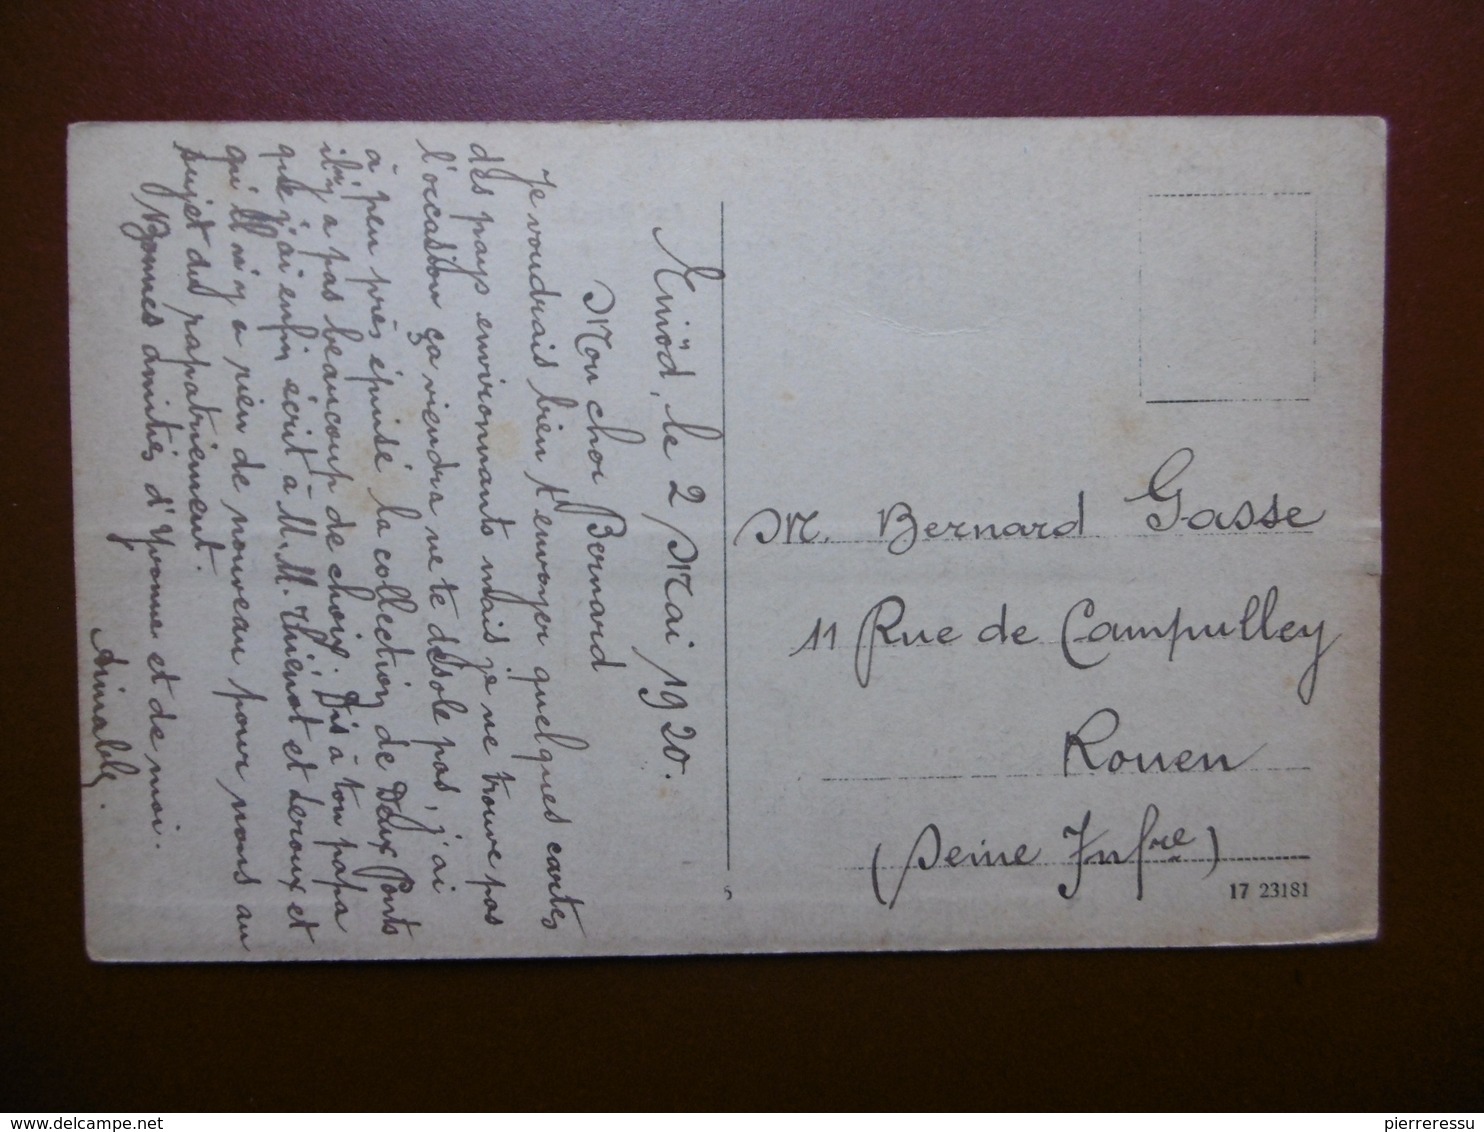 le 2 Mai 1920.
Mon cher Bernard
Je voudrais bien t'envoyer quelques cartes
des pays environnants mais je ne trouve pas
l'occasion ça viendra ne te désole pas, j'ai
à peu près épuisé la collection de Deux Ponts
il n'y a pas beaucoup de choix. Dis à ton papa
que j'ai enfin écrit à M.M. Thiénot et Leroux et
qu'il n'y a rien de nouveau pour nous au
sujet du rapatriement.
Bonnes amitiés d'Yvonne et de moi.
Aimable.
M. Bernard Gasse
11 Rue de Campulley
Rouen
(Seine Infre)
17 23181
S
www.delcampe.net
pierreressu